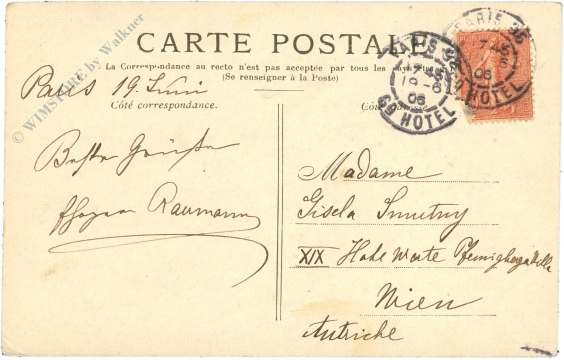 © WIMSTORE by Walkner
CARTE POSTALE
La Correspondance au recto n'est pas acceptée par tous les pays
(Se renseigner à la Poste)
Paris 19. Juni
Côté correspondance.
PARIS 35
7-45
19-6
06
Gd HOTEL
PARIS 35
7-45
06
HOTEL
Beste Grüße
Raumann
Madame
Gisela Smutny
XIX Hohe Warte
Wien
Autriche